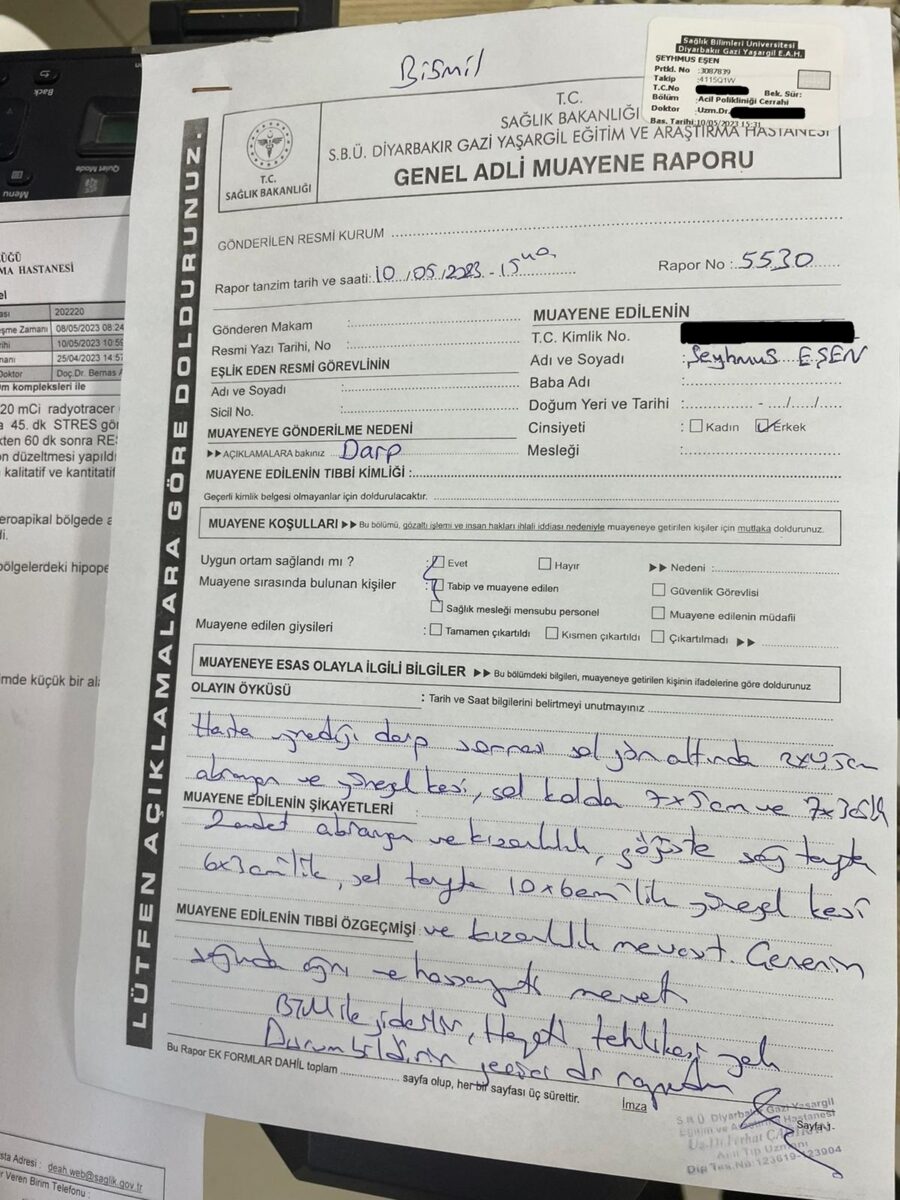 Bismil
Sağlık Bilimleri Üniversitesi
Diyarbakır Gazi Yaşargil E.A.H.
ŞEYHMUS EŞEN
Prtkl. No :3087839
Takip :4115Q1W
T.C.No
Bek. Sür:
Bölüm :Acil Polikliniği Cerrahi
Doktor :Uzm.Dr.
Bas. Tarihi:10/05/2023 15:31
T.C.
SAĞLIK BAKANLIĞI
S.B.Ü. DİYARBAKIR GAZİ YAŞARGİL EĞİTİM VE ARAŞTIRMA HASTANESİ
GENEL ADLİ MUAYENE RAPORU
T.C.
SAĞLIK BAKANLIĞI
LÜTFEN AÇIKLAMALARA GÖRE DOLDURUNUZ.
GÖNDERİLEN RESMİ KURUM
Rapor tanzim tarih ve saati: 10/05/2023 - 15
Rapor No : 5530
Gönderen Makam :
Resmi Yazı Tarihi, No :
EŞLİK EDEN RESMİ GÖREVLİNİN
Adı ve Soyadı :
Sicil No. :
MUAYENEYE GÖNDERİLME NEDENİ
▸▸ AÇIKLAMALARA bakınız Darp
MUAYENE EDİLENİN
T.C. Kimlik No.
Adı ve Soyadı : Şeyhmus EŞEN
Baba Adı :
Doğum Yeri ve Tarihi : - .../..../.....
Cinsiyeti : Kadın Erkek
Mesleği :
MUAYENE EDİLENİN TIBBİ KİMLİĞİ :
Geçerli kimlik belgesi olmayanlar için doldurulacaktır.
MUAYENE KOŞULLARI ▸▸ Bu bölümü, gözaltı işlemi ve insan hakları ihlali iddiası nedeniyle muayeneye getirilen kişiler için mutlaka doldurunuz.
Uygun ortam sağlandı mı ? : Evet Hayır ▸▸ Nedeni :
Muayene sırasında bulunan kişiler : Tabip ve muayene edilen Güvenlik Görevlisi
Sağlık mesleği mensubu personel Muayene edilenin müdafii
Muayene edilen giysileri : Tamamen çıkartıldı Kısmen çıkartıldı Çıkartılmadı ▸▸
MUAYENEYE ESAS OLAYLA İLGİLİ BİLGİLER ▸▸ Bu bölümdeki bilgileri, muayeneye getirilen kişinin ifadelerine göre doldurunuz
OLAYIN ÖYKÜSÜ : Tarih ve Saat bilgilerini belirtmeyi unutmayınız
Hasta darp sonrası sol altında
ve yüzeyel kesi, sol kolda 7x5cm ve
MUAYENE EDİLENİN ŞİKAYETLERİ
2 adet abrazyon ve kızarıklık, göğüste sağ tarafta
6x3cm'lik, sol tarafta 10x6cm'lik yüzeyel kesi
MUAYENE EDİLENİN TIBBİ ÖZGEÇMİŞİ ve kızarıklık mevcut. Çenenin
sağında ağrı ve hassasiyet mevcut
BTM ile giderilir, Hayati tehlikesi yok
Durum bildirir geçici dr raporudur
Bu Rapor EK FORMLAR DAHİL toplam sayfa olup, her bir sayfası üç sürettir.
İmza
Sayfa 1.
S.B.Ü. Diyarbakır Gazi Yaşargil
Eğitim ve Araştırma Hastanesi
Uz.Dr.Ferhat
Acil Tıp Uzmanı
Dip.Tes.No: 123619-123904
Back
Quiet Mode
Menu
MA HASTANESİ
202220
eşme Zamanı 08/05/2023 08:24
10/05/2023 10:59
25/04/2023 14:57
Doktor Doç.Dr. Bernas
m kompleksleri ile
20 mCi radyotracer
a 45. dk STRES
kten 60 dk sonra
on düzeltmesi yapıldı
kalitatif ve kantitatif
eroapikal bölgede
bölgelerdeki
imde küçük bir
sta Adresi : deah.web@saglik.gov.tr
Veren Birim Telefonu :